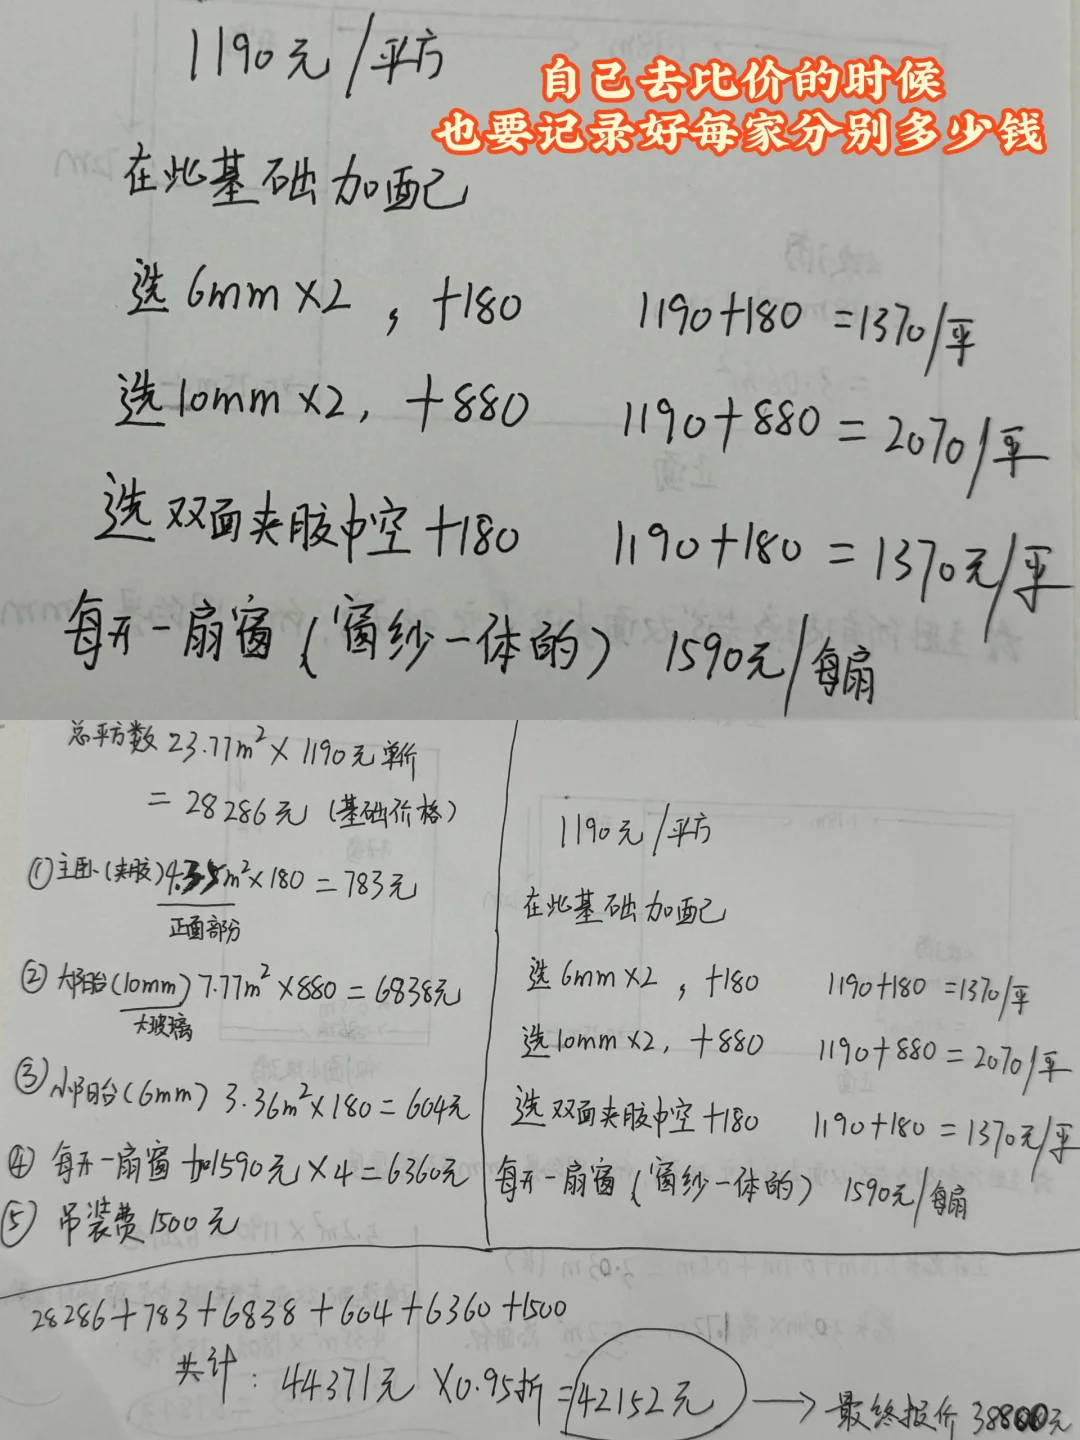 1190元/平方
自己去比价的时候
也要记录好每家分别多少钱
在此基础加配
选6mm×2，+180 1190+180=1370/平
选10mm×2，+880 1190+880=2070/平
选双面夹胶中空+180 1190+180=1370元/平
每开一扇窗（窗纱一体的） 1590元/每扇
总平方数 23.77m²×1190元单价
=28286元（基础价格）
①主卧（夹胶）4.35m²×180=783元
正面部分
②大阳台（10mm）7.77m²×880=6838元
大玻璃
③小阳台（6mm）3.36m²×180=604元
④每开一扇窗加1590元×4=6360元
⑤吊装费1500元
1190元/平方
在此基础加配
选6mm×2，+180 1190+180=1370/平
选10mm×2，+880 1190+880=2070/平
选双面夹胶中空+180 1190+180=1370元/平
每开一扇窗（窗纱一体的） 1590元/每扇
28286+783+6838+604+6360+1500
共计：44371元×0.95折=42152元→最终报价38800元